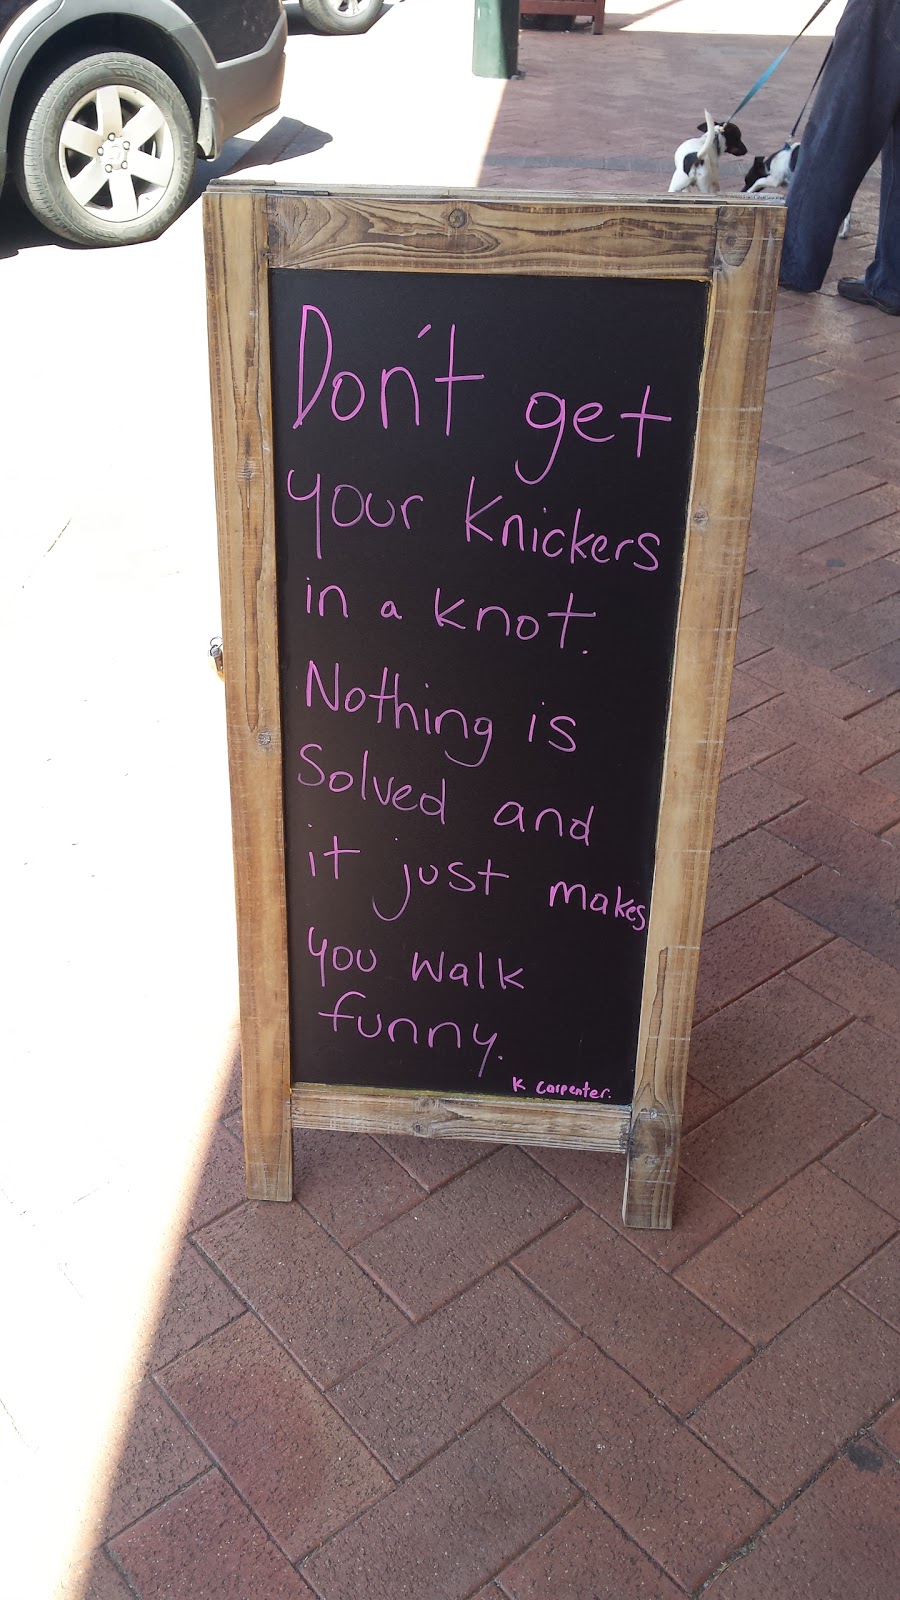 Don't get
your knickers
in a knot.
Nothing is
Solved and
it just makes
you walk
funny.
K Carpenter.